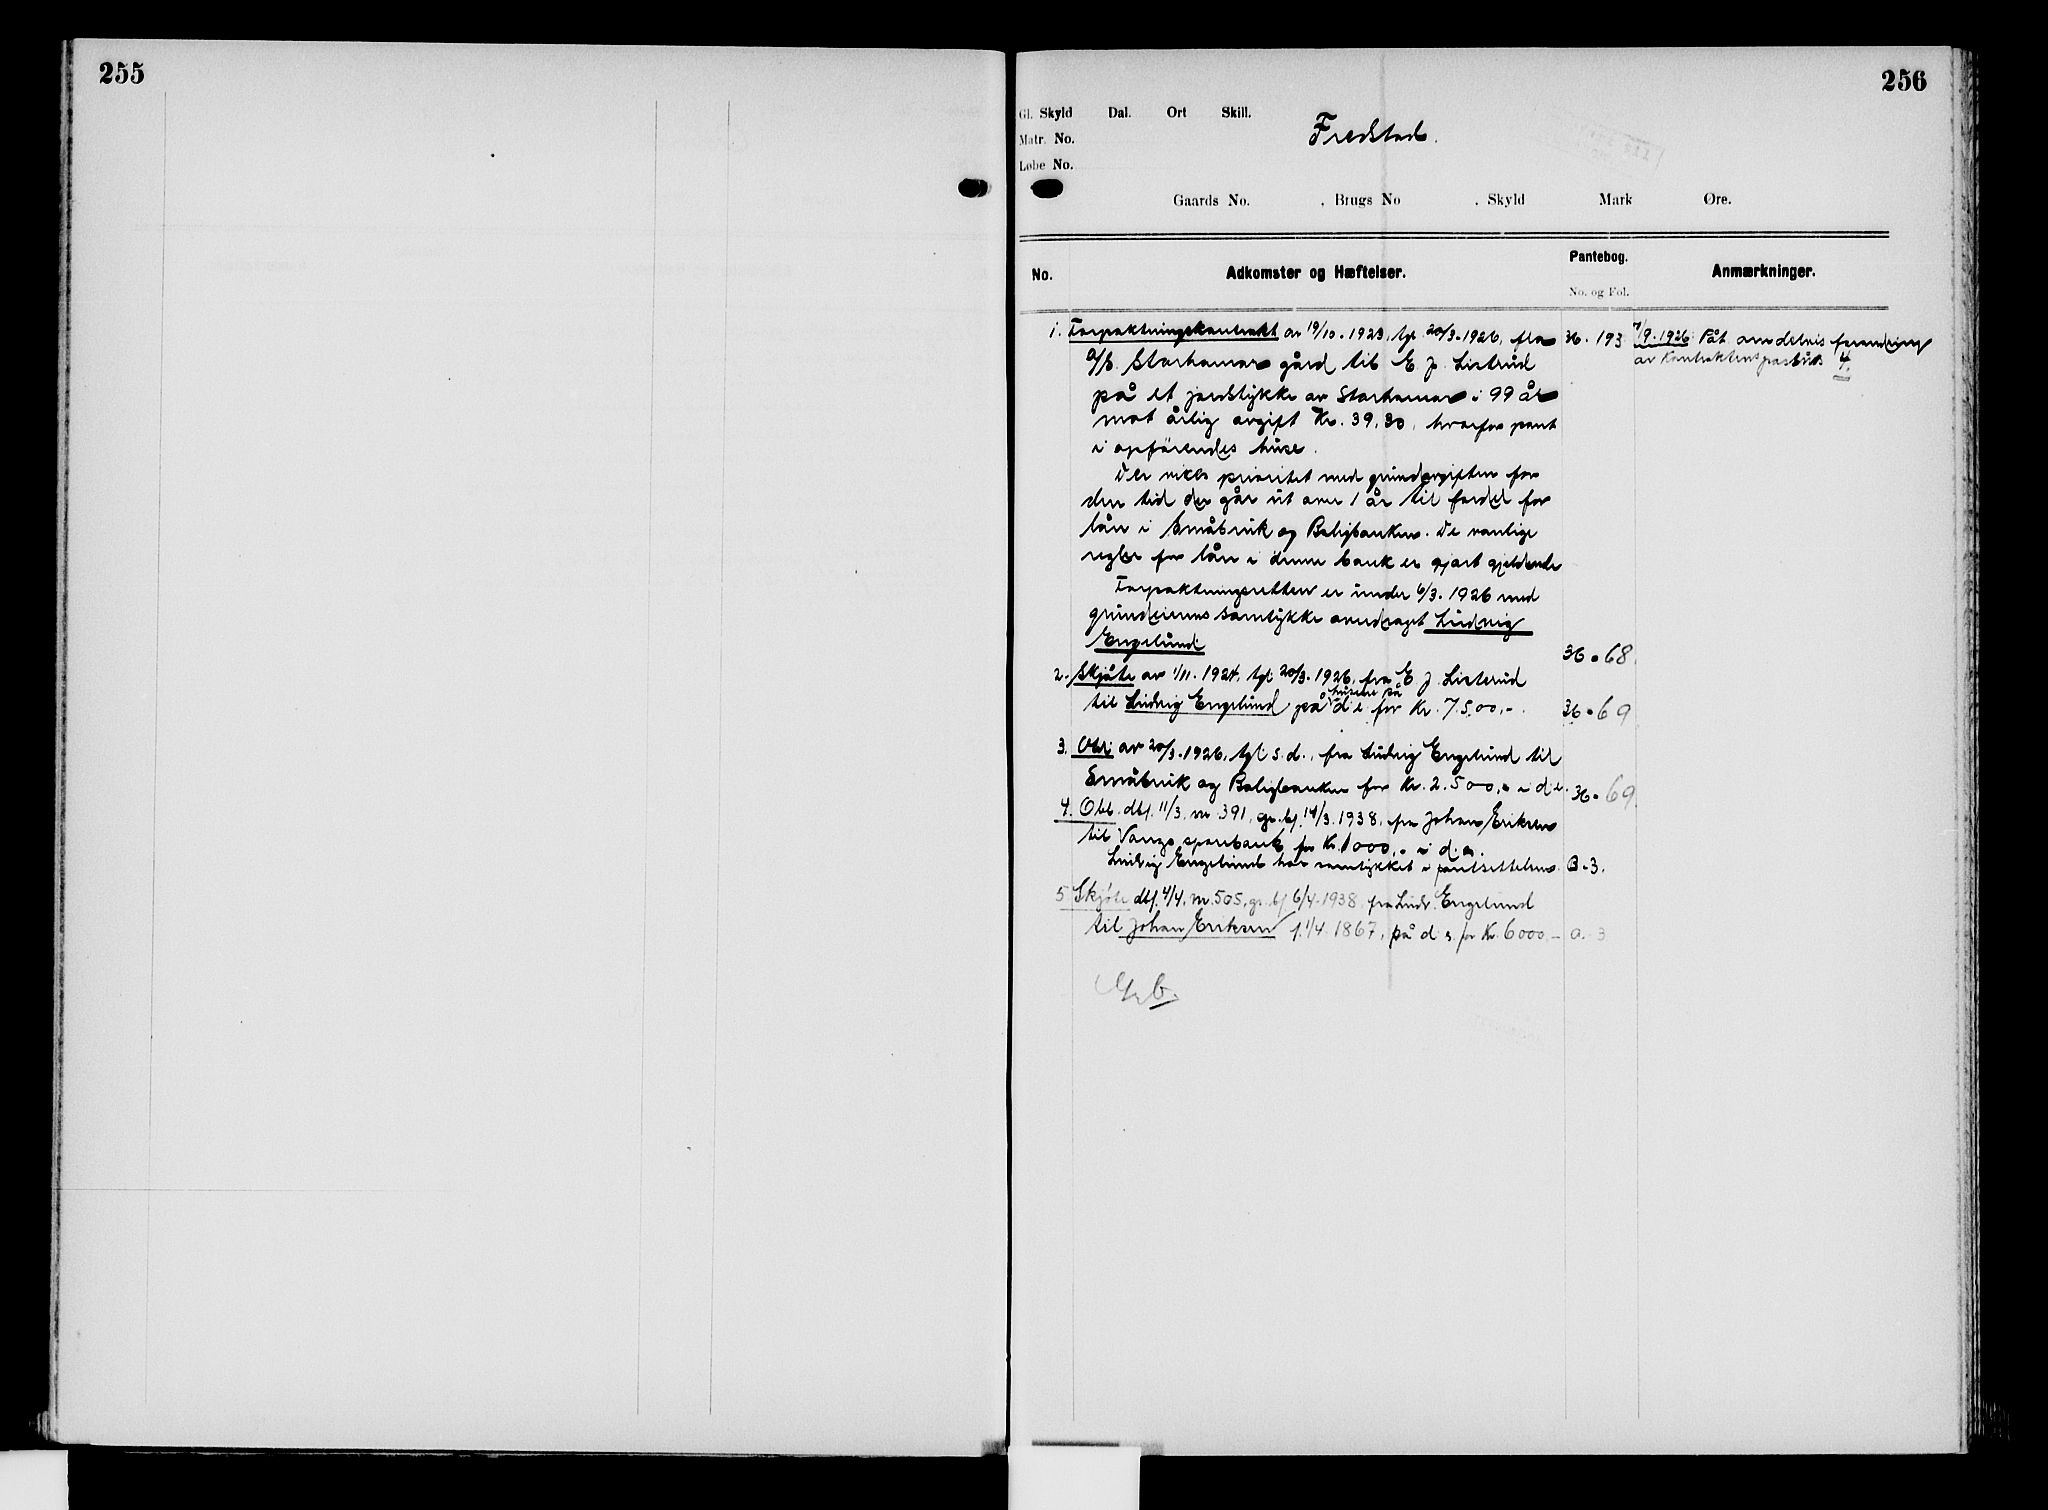 255
256
Gl. Skyld Dal. Ort Skill.
Matr. No.
Løbe No.
Fredstad.
Gaards No. , Brugs No . Skyld Mark Øre.
No. Adkomster og Hæftelser. Pantebog. No. og Fol. Anmærkninger.
1. Forpaktningskontrakt av 19/10.1923, tgl. 20/3.1926, fra 36.193
a/s. Storhamar gård til E. J. Listerud
på et jordstykke av Storhamar i 99 år
mot årlig avgift Kr. 39,30, hvorfor pant
i opførendes huse.
Der vikes prioritet med grundavgiften for
den tid der går ut over 1 år til fordel for
lån i Småbruk og Boligbanken. De vanlige
regler for lån i denne bank er gjort gjeldende
Forpaktningsretten er under 6/3.1926 med
grundeierens samtykke overdraget Ludvig
Engelund 36.68.
2. Skjøte av 1/11.1924, tgl. 20/3.1926, fra E. J. Listerud
til Ludvig Engelund på husene på d.e. for Kr. 7.500,-. 36.69
3. Obl. av 20/3.1926, tgl. s.d., fra Ludvig Engelund til
Småbruk og Boligbanken for Kr. 2.500,- i d.e. 36.69.
4. Obl. dbf. 11/3, nr. 391, gr.bf. 14/3.1938, fra Johan Eriksen
til Vangs sparebank for Kr. 1000,- i d.e.
Ludvig Engelund har samtykket i pantsettelsen. B-3.
5 Skjøte dbf. 4/4, nr. 505, gr.bf 6/4-1938 fra Ludv. Engelund
til Johan Eriksen f. 1/4 1867, på d.e. for Kr. 6000,- a. 3
7/9.1926: Påt. om delvis forandring
av Kontraktens post 4.